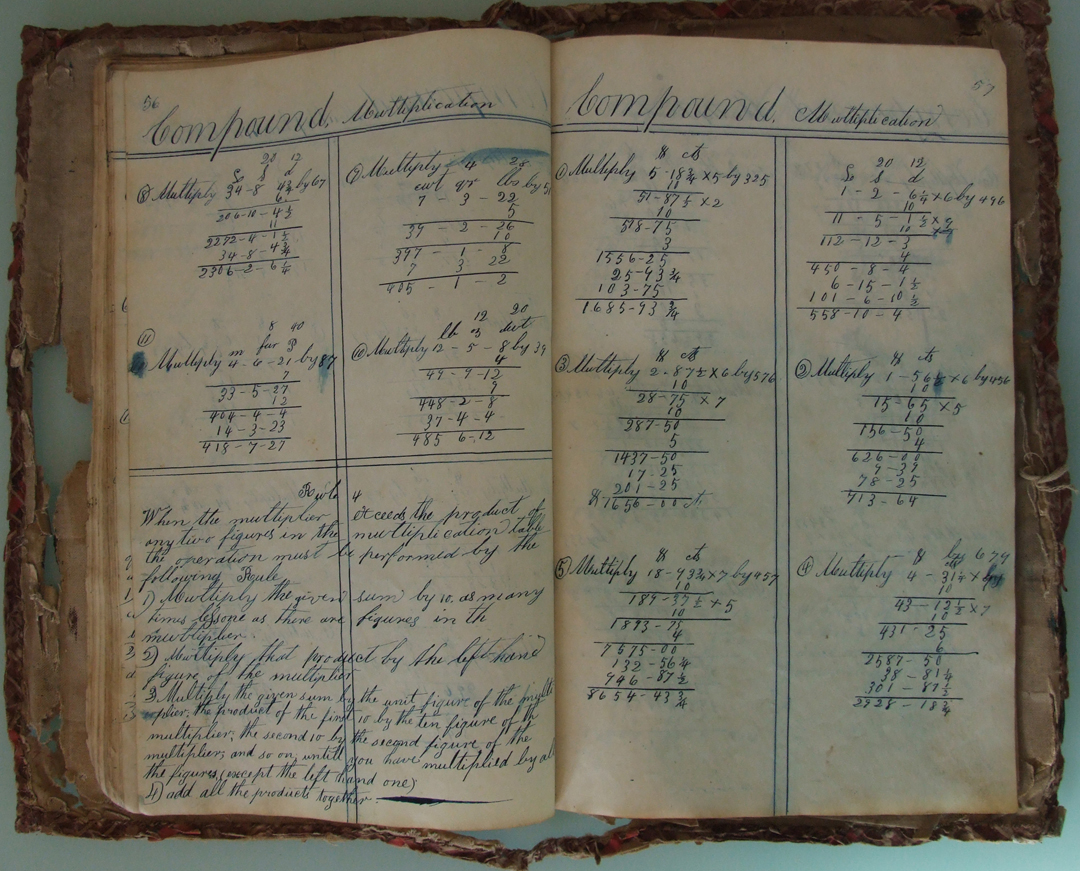 56
Compound Multiplication
20 12
£ s d
⑧ Multiply 34-8 4¾ by 67
6
206-10-4½
11
2272-4-1½
34-8-4¾
2306-2-6¼
⑨ Multiply 4 28
cwt qr lbs by 51
7 - 3 - 22
5
39 - 2 - 26
10
397 - 1 - 8
7 3 22
405 - 1 - 2
⑪
8 40
m fur P
Multiply 4-6-21 by 87
7
33-5-27
12
404-4-4
14-3-23
418-7-27
12 20
lb oz dwt
⑩ Multiply 12 - 5 - 8 by 39
4
49-9-12
9
448-2-8
37-4-4
485 6-12
Rule 4
When the multiplier exceeds the product of
any two figures in the multiplication table
the peration must be performed by the
following Rule
1) Multiply the given sum by 10. as many
times lessone as there are figures in th
multiplier.
2) Multiply that product by the left hand
figure of the multiplier
3 Multiply the given sum by the unit figure of the multi
plier, the product of the first 10 by the ten figure of th
multiplier, the second 10 by the second figure of the
multiplier, and so on, untill you have multiplied by all
the figures (except the left hand one)
4) add all the products together
57
Compound. Multiplication
$ cts
① Multiply 5-18¾ ×5 by 325
10
51-87½ ×2
10
518-75
3
1556-25
25-93¾
103-75
1685-93¾
20 12
£ s d
1 - 2 - 6¼ ×6 by 496
10
11 - 5 - 1½ × 9
10
112-12-3
4
450 - 8 - 4
6-15-1½
101-6-10½
558-10-4
$ cts
③ Multiply 2-87½ ×6 by 576
10
28-75 ×7
10
287-50
5
1437-50
17-25
201-25
$1656-00 ct
$ cts
② Multiply 1-56½ ×6 by 456
10
15-65 ×5
10
156-50
4
626-00
9-39
78-25
713-64
$ cts
⑤ Multiply 18-93¾ ×7 by 457
10
189-37½ ×5
10
1893-75
4
7575-00
132-56¼
946-87½
8654-43¾
$ by 679
cts
④ Multiply 4-31¼ ×
10
43-12½ ×7
10
431-25
6
2587-50
38-81¼
301-87½
2928-18¾